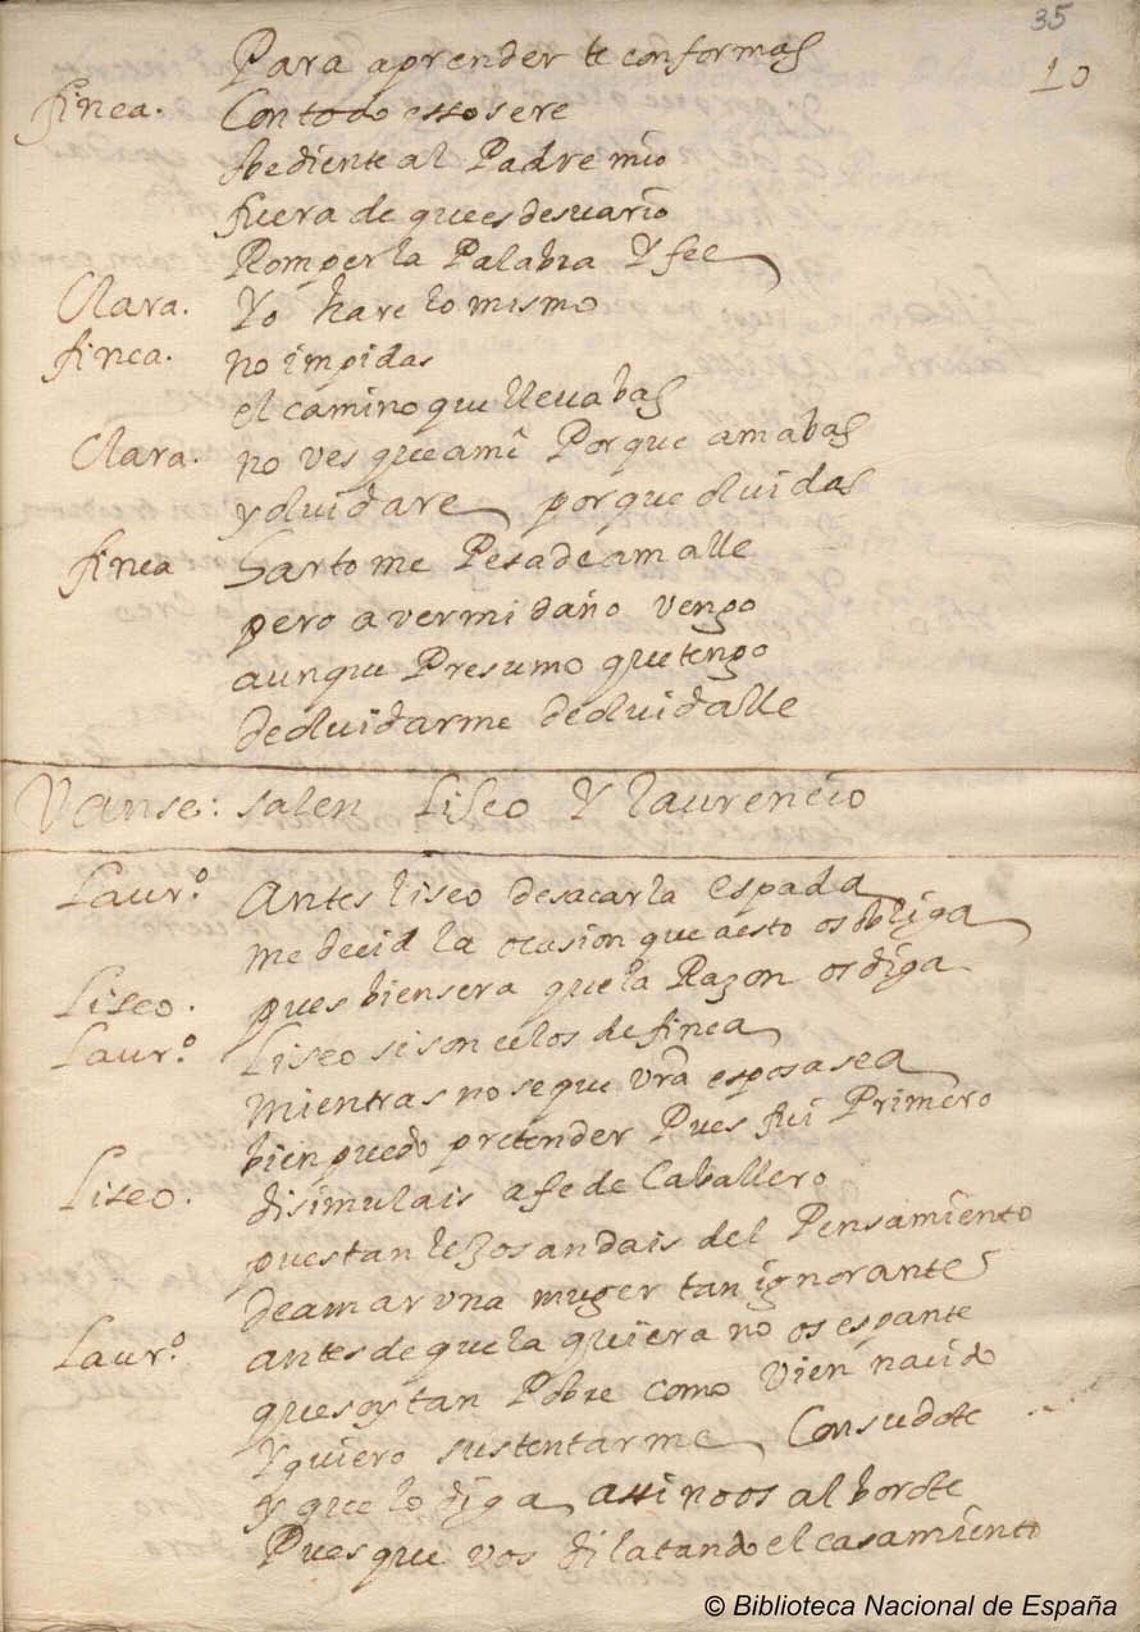 35
10
Para aprender te conformas
finea. Con todo esso sere
obediente al Padre mio
fuera de que es desuario
Romper la Palabra Y fee
Clara. Yo hare lo mismo
finea. no impidas
el camino que lleuabas
Clara. no ves que ame Porque amabas
y oluidare porque oluidas
finea Harto me Pesa de amalle
pero a ver mi daño vengo
aunque Presumo que tengo
de oluidarme de oluidalle
Vanse: salen Liseo Y laurencio
Laur.º Antes liseo de sacar la espada
me decid la ocasion que a esto os obliga
Liseo. pues bien sera que la Razon os diga
Laur.º Liseo si son celos de finea
mientras no se que vrã esposa sea
bien puedo pretender Pues fui Primero
Liseo. disimulais a fe de Caballero
pues tan lexos andais del Pensamiento
de amar vna muger tan ignorante
Laur.º antes de que la quiera no os espante
que soy tan Pobre como Vien nacido
Y quiero sustentarme Con su dote
y que lo diga assi no os alborote
Pues que vos dilatando el casamiento
© Biblioteca Nacional de España